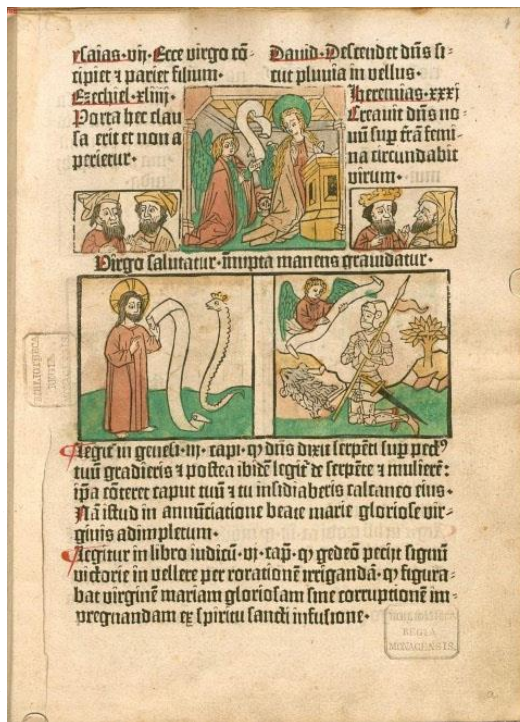 ysaias·vij· Ecce virgo cō-
cipiet ⁊ pariet filium·
Dauid· Descendet dn̄s si-
cut pluuia in vellus·
Ezechiel·xliiij·
Porta hec clau
sa erit et non a
perietur·
Hieremias·xxxj
Creauit dn̄s no-
uū sup̄ trā femi-
na circundabit
virum·
Virgo salutatur· īnupta manens grauidatur·
Legit᷑ in genesi·iij· capi· ꝙ dn̄s dixit serpēti sup̄ pectꝰ
tuū gradieris ⁊ postea ibidē legit᷑ de serpēte ⁊ muliere:
ip̄a cōteret caput tuū ⁊ tu insidiaberis calcaneo eius·
Nā istud in annūciatione beate marie gloriose vir-
ginis adimpletum·
Legitur in libro iudicū·vj· cap̄· ꝙ gedeō petijt signū
victorie in vellere per rorationē irrigandā· ꝙ figura-
bat virginē mariam gloriosam sine corruptionē im-
pregnandam ex spiritu sancti infusione·
BIBLIOTHECA
REGIA
MONACENSIS.
BIBLIOTHECA
REGIA